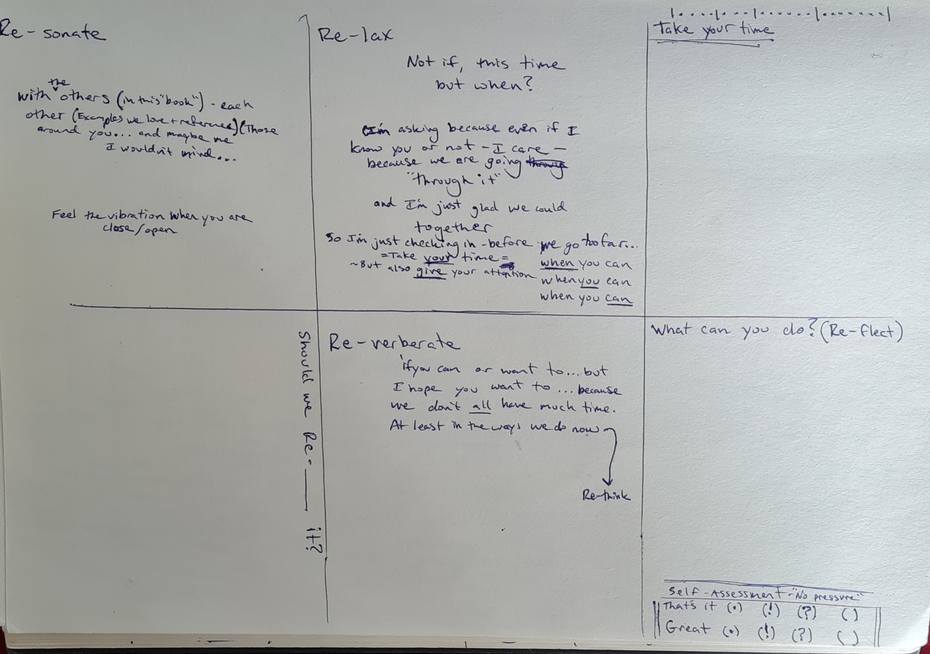 Re-sonate
the
with others (in this "book") - each
other (Examples we love + reference) (Those
around you... and maybe me
I wouldn't mind...
Feel the vibration when you are
close/open
Re-lax
Not if, this time
but when?
I'm asking because even if I
know you or not - I care -
because we are going
"through it"
and I'm just glad we could
together
So I'm just checking in - before we go too far...
=Take your time=
~But also give your attention
when you can
when you can
when you can
Take your time
Should we Re-____ it?
Re-verberate
if you can or want to... but
I hope you want to... because
we don't all have much time.
At least in the ways we do now
Re-think
What can you do? (Re-flect)
Self-Assessment - "No pressure"
That's it (•) (!) (?) ( )
Great (•) (!) (?) ( )